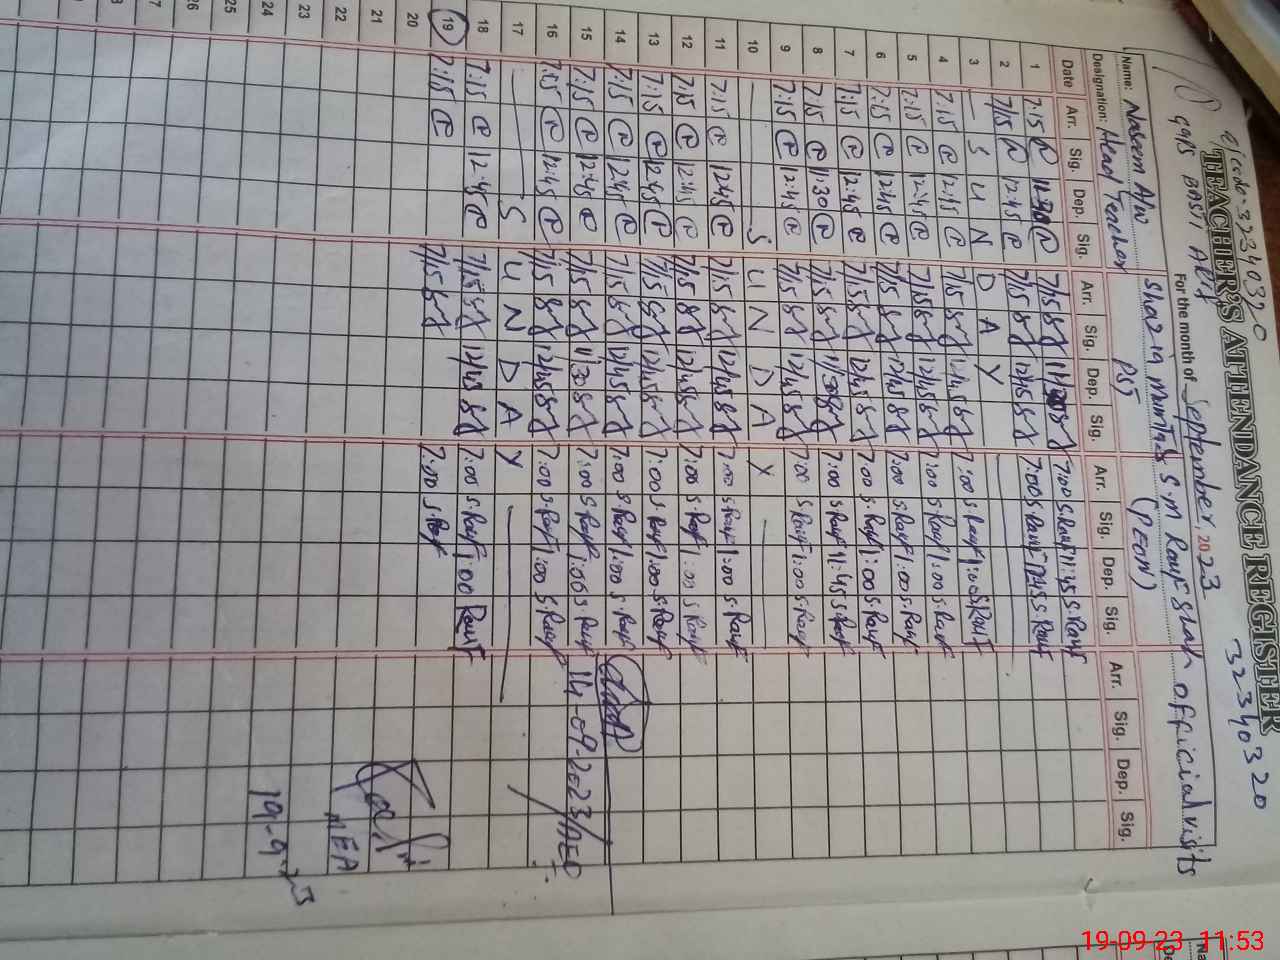 TEACHER'S ATTENDANCE REGISTER
32340320
For the month of September, 2023
Name: Naseem A/W Shazia Mumtaz S.M Rauf Shah official visits
Designation: Head Teacher PST (PEON)
Date Arr. Sig. Dep. Sig. Arr. Sig. Dep. Sig. Arr. Sig. Dep. Sig. Arr. Sig. Dep. Sig.
1 7:15 11:30 7/15 11/30 7:00 S.Rauf 11:45 S.Rauf
2 7/15 12:45 7/15 12/45 7:00 S.Rauf 12:45 S.Rauf
3 — S U N D A Y —
4 7:15 12:45 7/15 12/45 7:00 S.Rauf 1:00 S.Rauf
5 7:15 12:45 7/15 12/45 7:00 S.Rauf 1:00 S.Rauf
6 7:15 12:45 7/15 12/45 7:00 S.Rauf 1:00 S.Rauf
7 7:15 12:45 7/15 12/45 7:00 S.Rauf 1:00 S.Rauf
8 7:15 11:30 7/15 11/30 7:00 S.Rauf 11:45 S.Rauf
9 7:15 12:45 7/15 12/45 7:00 S.Rauf 1:00 S.Rauf
10 — S U N D A Y —
11 7:15 12:45 7/15 12/45 7:00 S.Rauf 1:00 S.Rauf
12 7:15 12:45 7/15 12/45 7:00 S.Rauf 1:00 S.Rauf
13 7:15 12:45 7/15 12/45 7:00 S.Rauf 1:00 S.Rauf
14 7:15 12:45 7/15 12/45 7:00 S.Rauf 1:00 S.Rauf
15 7:15 12:45 7/15 11/30 7:00 S.Rauf 1:00 S.Rauf 14-09-2023/AEO
16 7:15 12:45 7/15 12/45 7:00 S.Rauf 1:00 S.Rauf
17 — S U N D A Y —
18 7:15 12:45 7/15 12/45 7:00 S.Rauf 1:00 Rauf
19 7:15 7/15 7:00 S.Rauf
20
21
22 MEA
23
24 19-9-23
25
26
19-09-23 11:53